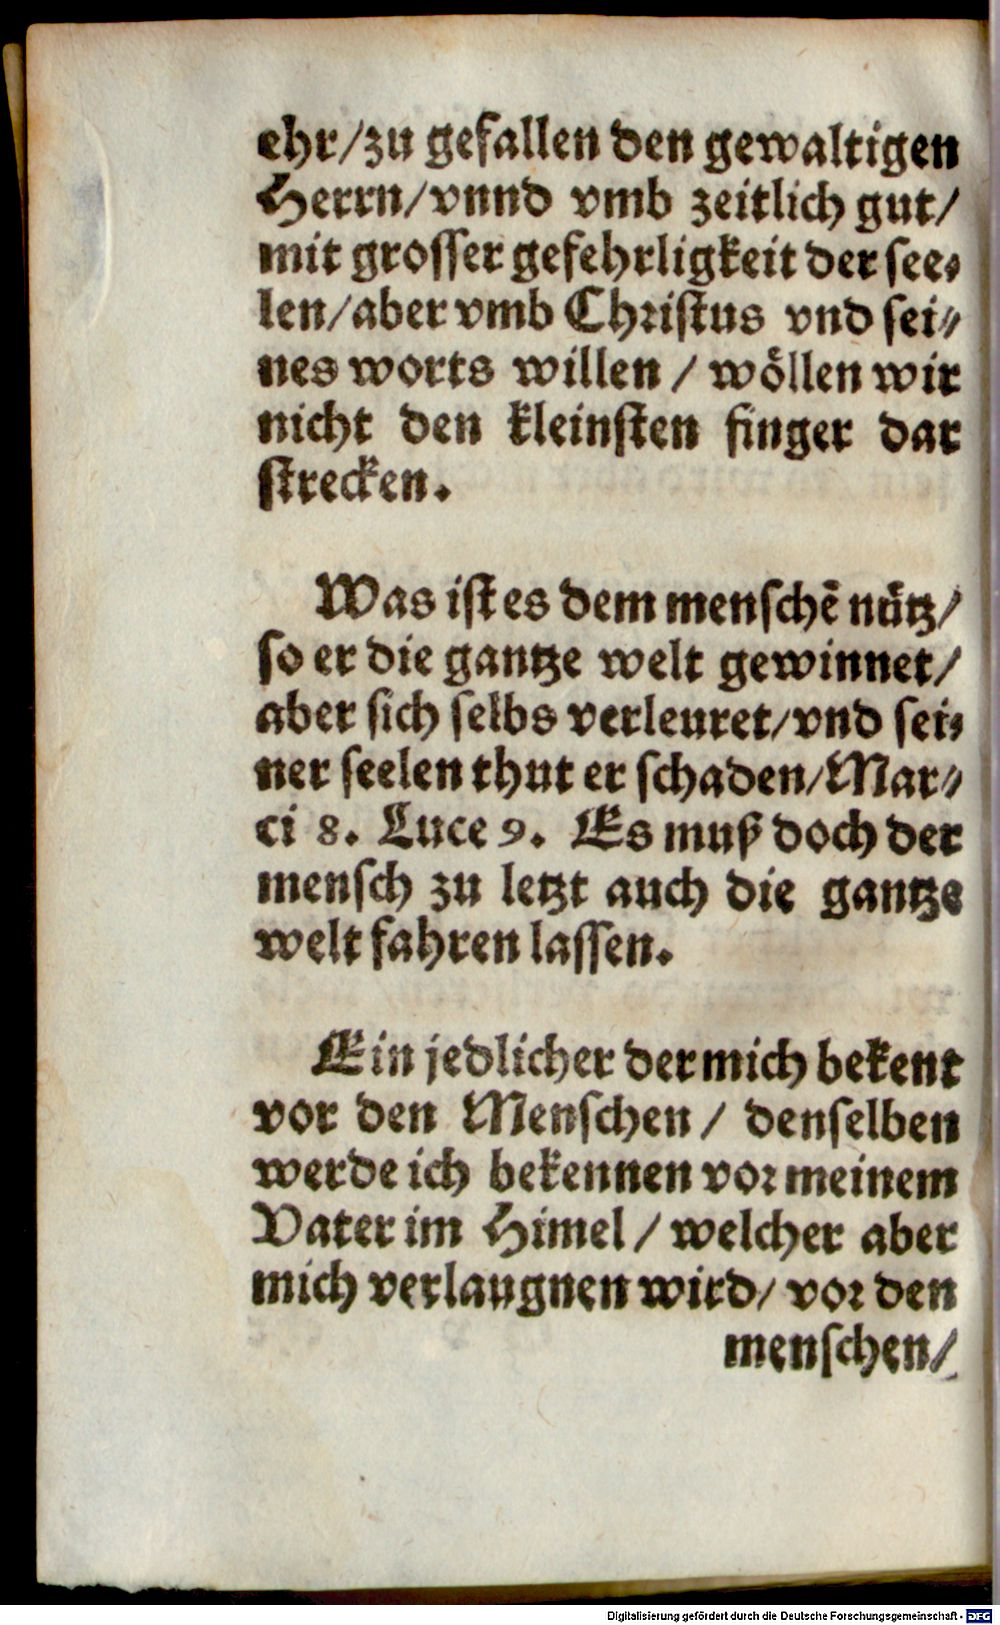 ehr/zu gefallen den gewaltigen
Herrn/vnnd vmb zeitlich gut/
mit grosser gefehrligkeit der see-
len/aber vmb Christus vnd sei-
nes worts willen / wöllen wir
nicht den kleinsten finger dar
strecken.
Was ist es dem menschē nütz/
so er die gantze welt gewinnet/
aber sich selbs verleuret/vnd sei-
ner seelen thut er schaden/Mar-
ci 8. Luce 9. Es muß doch der
mensch zu letzt auch die gantze
welt fahren lassen.
Ein jedlicher der mich bekent
vor den Menschen / denselben
werde ich bekennen vor meinem
Vater im Himel / welcher aber
mich verlaugnen wird/ vor den
menschen/
Digitalisierung gefördert durch die Deutsche Forschungsgemeinschaft - DFG